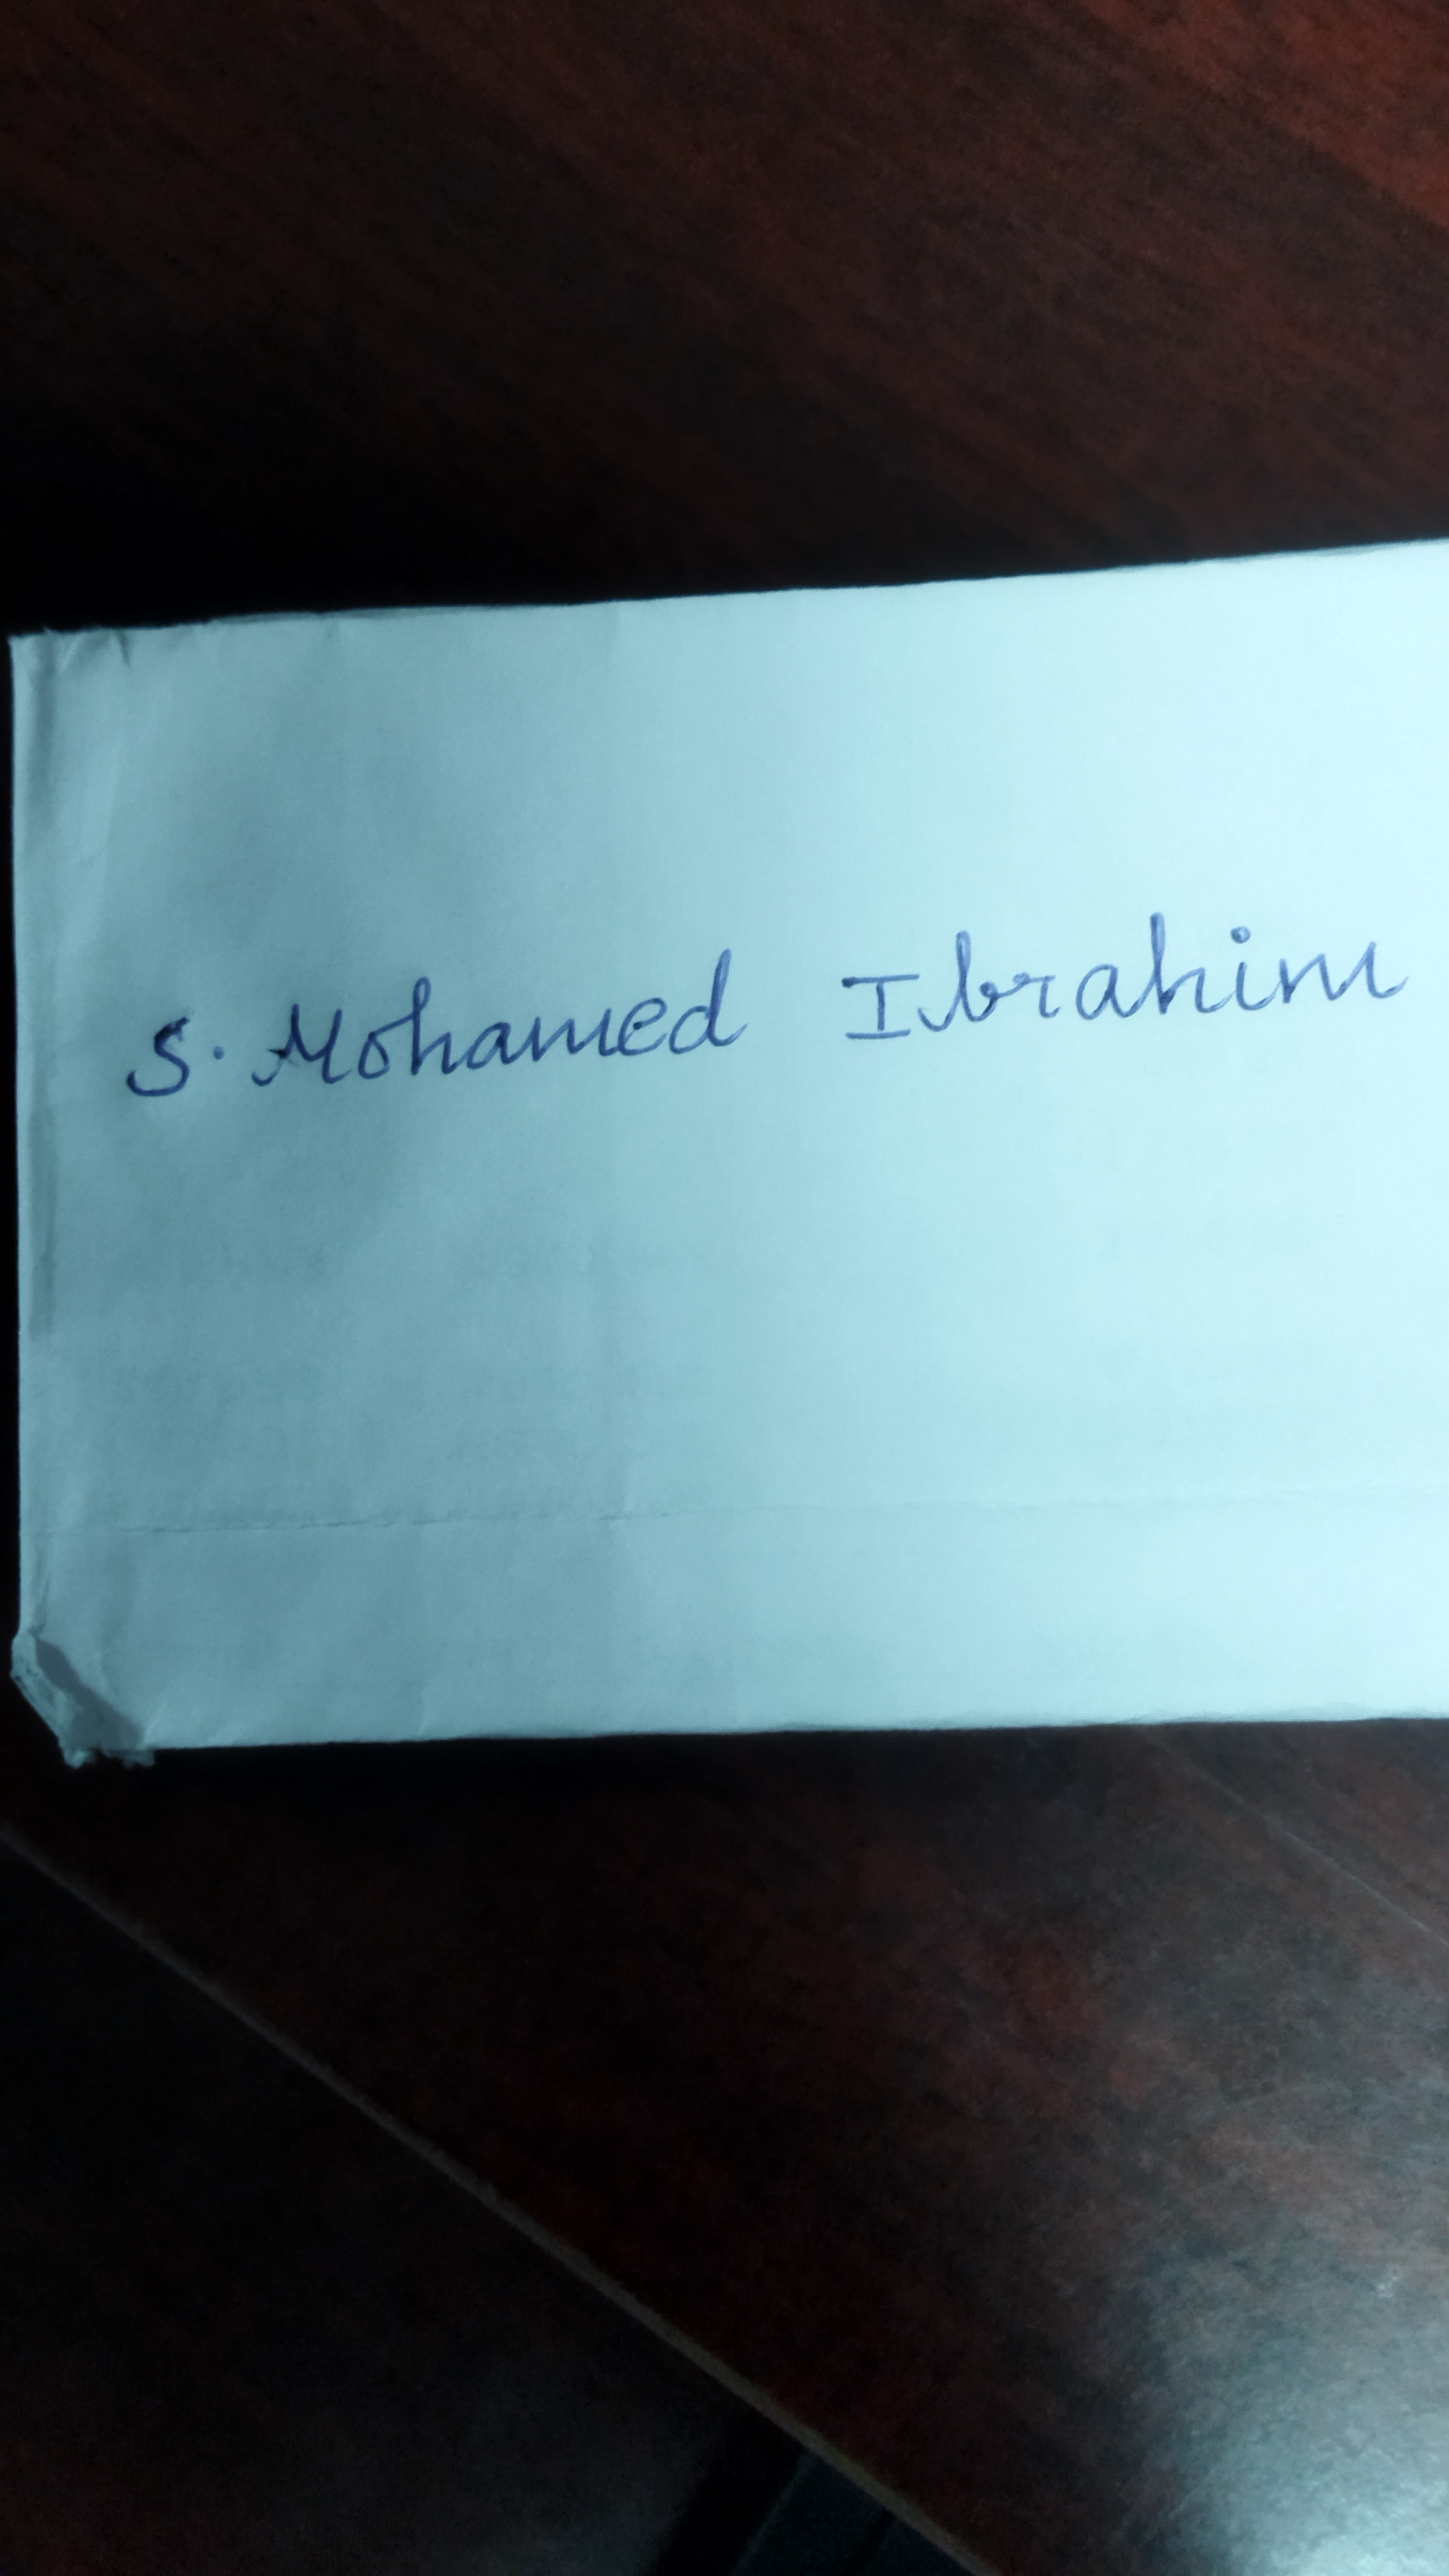 S. Mohamed Ibrahim